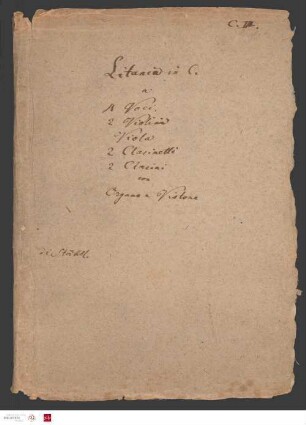 C. VII.
Litania in C.
a
4 Voci.
2 Violini
Viola
2 Clarinetti
2 Clarini
con
Organo e Violone